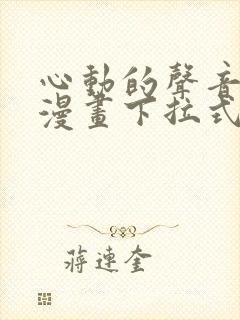 心動的聲音
漫畫下拉式
蔣連奎